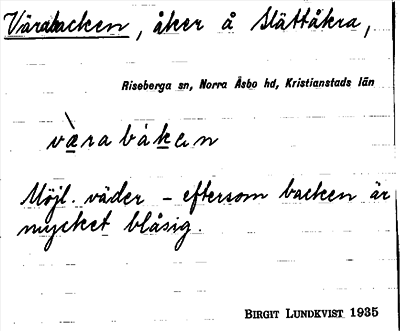 Värabacken, åker å Slättåkra,
Riseberga sn, Norra Åsbo hd, Kristianstads län
væ̀rabàkɐn
Möjl. väder - eftersom backen är
mycket blåsig.
BIRGIT LUNDKVIST 1935